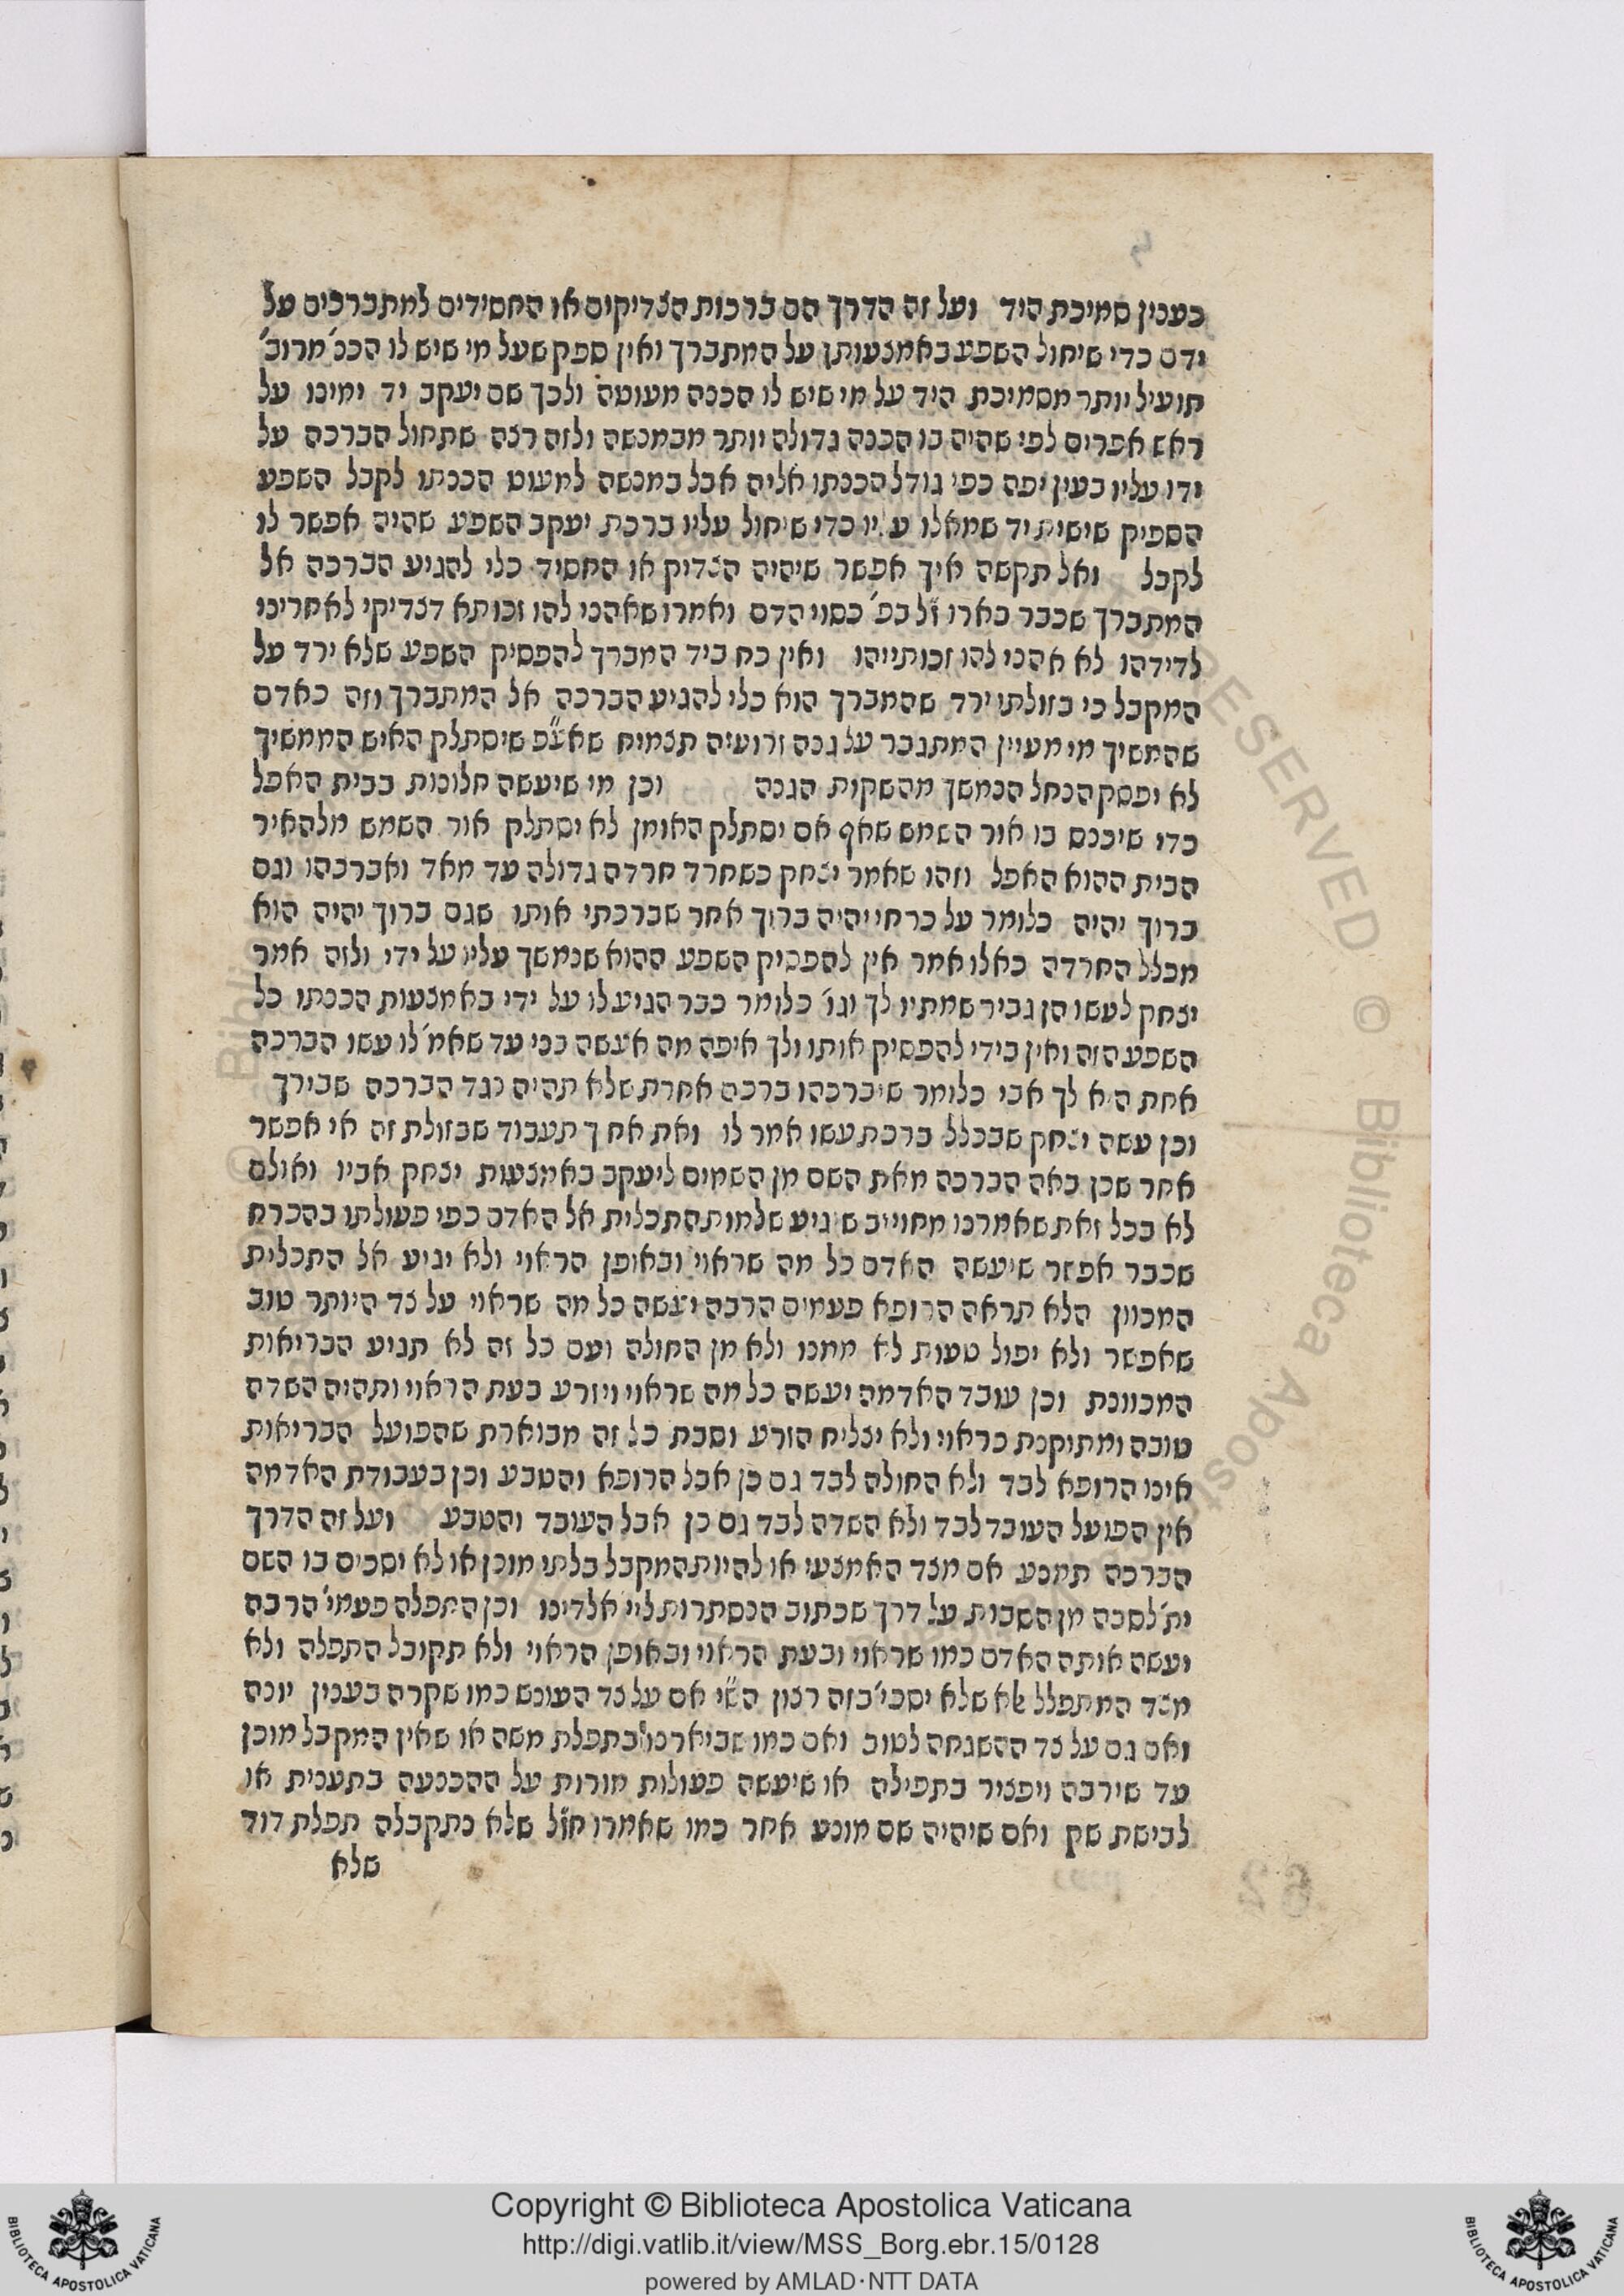 בענין סמיכת היד ועל זה הדרך הם ברכות הצדיקים או החסידים למתברכים על
ידם כדי שיחול השפע באמצעותן על המתברך ואין ספק שעל מי שיש לו הכנ׳ מרוב׳
תועיל יותר מסמיכת היד על מי שיש לו הכנה מעוטה ולכך שם יעקב יד ימינו על
ראש אפרים לפי שהיה בו הכנה גדולה יותר מבמנשה ולזה רצה שתחול הברכה על
ידו עליו בעין יפה כפי גודל הכנתו אליה אבל במנשה למעוט הכנתו לקבל השפע
הספיק שישית יד שמאלו עליו כדי שיחול עליו ברכת יעקב השפע שהיה אפשר לו
לקבל ואל תקשה איך אפשר שיהיה הצדיק או החסיד כלי להגיע הברכה אל
המתברך שכבר בארו ז״ל בפ׳ כסוי הדם ואמרו שאהני להו זכותא דצדיקי לאחריני
לדידהו לא אהני להו זכותייהו ואין כח ביד המברך להפסיק השפע שלא ירד על
המקבל כי בזולתו ירד שהמברך הוא כלי להגיע הברכה אל המתברך וזה כאדם
שהמשיך מי מעיין המתגבר על גנה זרועיה תצמיח שאע״פ שיסתלק האיש הממשיך
לא יפסק הנחל הנמשך מהשקות הגנה וכן מי שיעשה חלונות בבית האפל
כדי שיכנס בו אור השמש שאף אם יסתלק האומן לא יסתלק אור השמש מלהאיר
הבית ההוא האפל וזהו שאמר יצחק כשחרד חרדה גדולה עד מאד ואברכהו וגם
ברוך יהיה כלומר על כרחי יהיה ברוך אחר שברכתי אותו שגם ברוך יהיה הוא
מכלל החרדה כאלו אמר אין להפסיק השפע ההוא שנמשך עליו על ידי ולזה אמר
יצחק לעשו הן גביר שמתיו לך וגו׳ כלומר כבר הגיע לו על ידי באמצעות הכנתו כל
השפע הזה ואין בידי להפסיק אותו ולך איפה מה אעשה בני עד שאמ׳ לו עשו הברכה
אחת היא לך אבי כלומר שיברכהו ברכה אחרת שלא תהיה נגד הברכה שבירך
וכן עשה יצחק שבכלל ברכת עשו אמר לו ואת אחיך תעבוד שבזולת זה אי אפשר
אחר שכן באה הברכה מאת השם מן השמים ליעקב באמצעות יצחק אביו ואולם
לא בכל זאת שאמרנו מחוייב שיגיע שלמות התכלית אל האדם כפי פעולתו בהכרח
שכבר אפשר שיעשה האדם כל מה שראוי ובאופן הראוי ולא יגיע אל התכלית
המכוון הלא תראה הרופא פעמים הרבה יעשה כל מה שראוי על צד היותר טוב
שאפשר ולא יפול טעות לא ממנו ולא מן החולה ועם כל זה לא תגיע הבריאות
המכוונת וכן עובד האדמה יעשה כל מה שראוי ויזרע בעת הראוי ותהיה השדה
טובה ומתוקנת כראוי ולא יצליח הזרע וסבת כל זה מבוארת שהפועל הבריאות
אינו הרופא לבד ולא החולה לבד גם כן אבל הרופא והטבע וכן בעבודת האדמה
אין הפועל העובד לבד ולא השדה לבד גם כן אבל העובד והטבע ועל זה הדרך
הברכה תמנע אם מצד האמצעי או להיות המקבל בלתי מוכן או לא יסכים בו השם
ית׳ לסבה מן הסבות על דרך שכתוב הנסתרות ליי׳ אלדינו וכן התפלה פעמי׳ הרבה
יעשה אותה האדם כמו שראוי ובעת הראוי ובאופן הראוי ולא תקובל התפלה ולא
מצד המתפלל אלא שלא יסכי׳ בזה רצון הש״י אם על צד העונש כמו שקרה בענין יונה
ואם גם על צד ההשגחה לטוב ואם כמו שביארנו בתפלת משה או שאין המקבל מוכן
עד שירבה ויפציר בתפילה או שיעשה פעולות מורות על ההכנעה בתענית או
לבישת שק ואם שיהיה שם מונע אחר כמו שאמרו חז״ל שלא נתקבלה תפלת דוד
שלא
Copyright © Biblioteca Apostolica Vaticana
http://digi.vatlib.it/view/MSS_Borg.ebr.15/0128
powered by AMLAD·NTT DATA